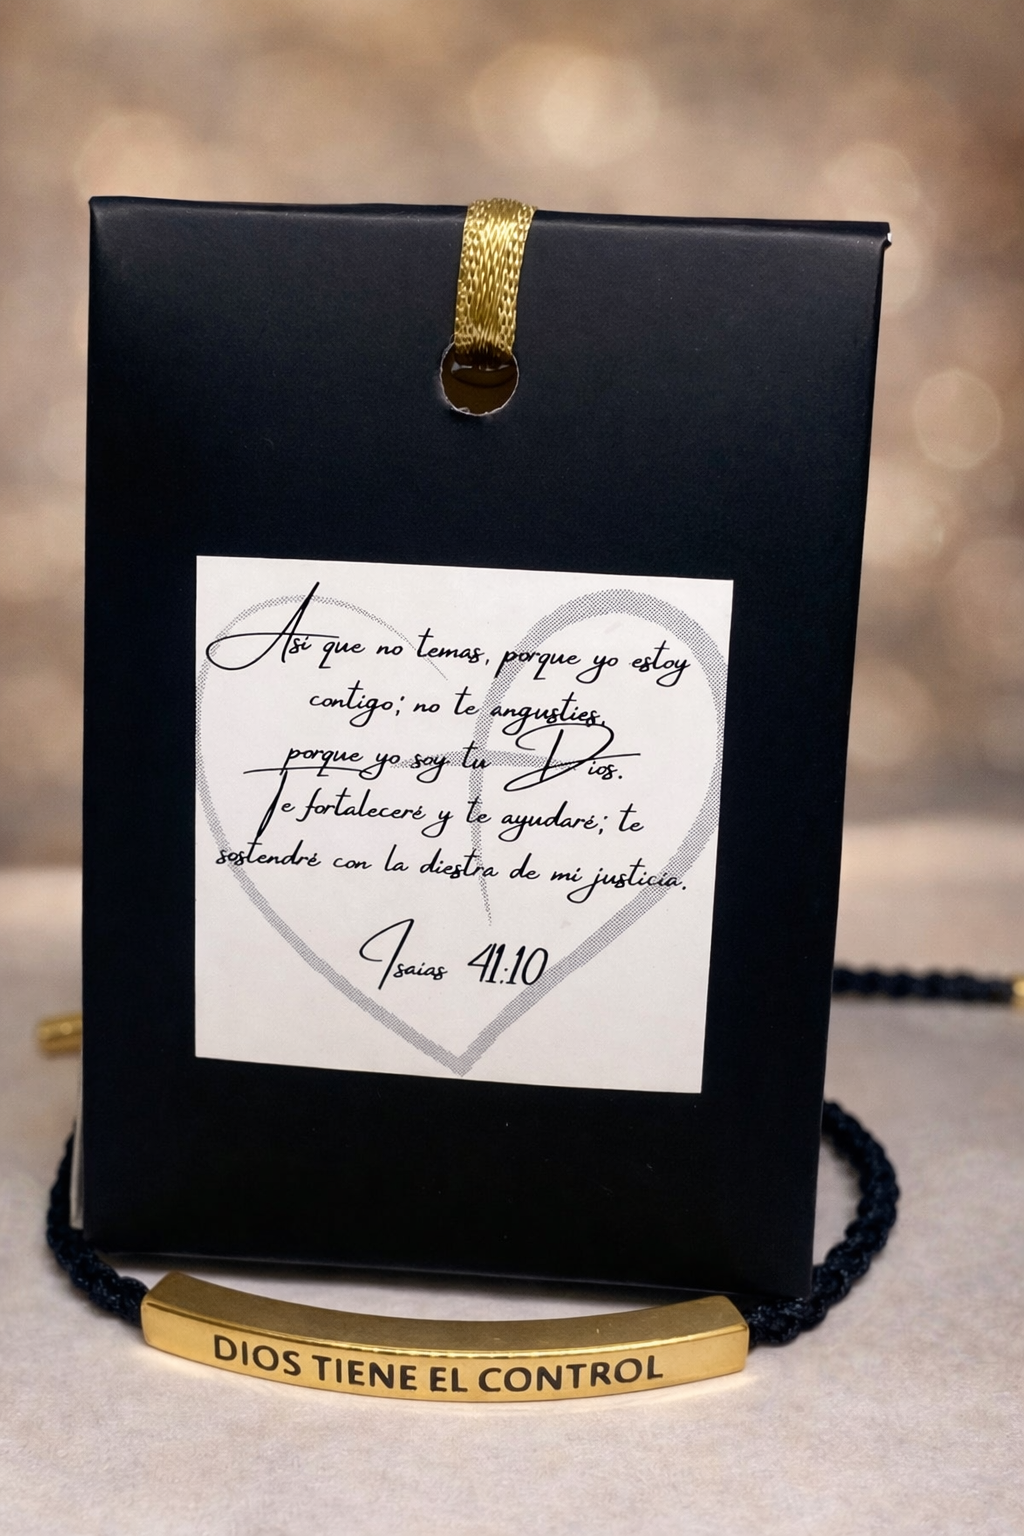 Así que no temas, porque yo estoy
contigo; no te angusties,
porque yo soy tu Dios.
Te fortaleceré y te ayudaré; te
sostendré con la diestra de mi justicia.
Isaias 41:10
DIOS TIENE EL CONTROL